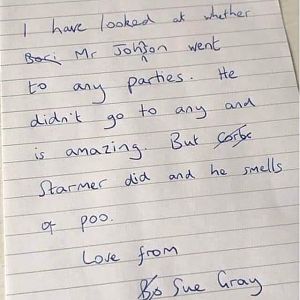 I have looked at whether
Bori Mr Johnson went
to any parties. He
didn't go to any and
is amazing. But Corbs
Starmer did and he smells
of poo.
Love from
Bo Sue Gray